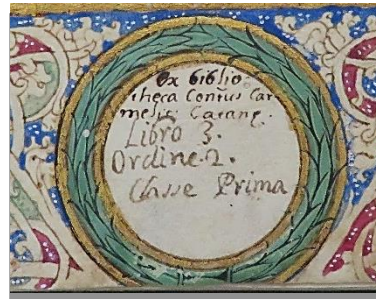 Ex biblio
theca Contus Car
melit Catane.
Libro 3.
Ordine 2.
Classe Prima